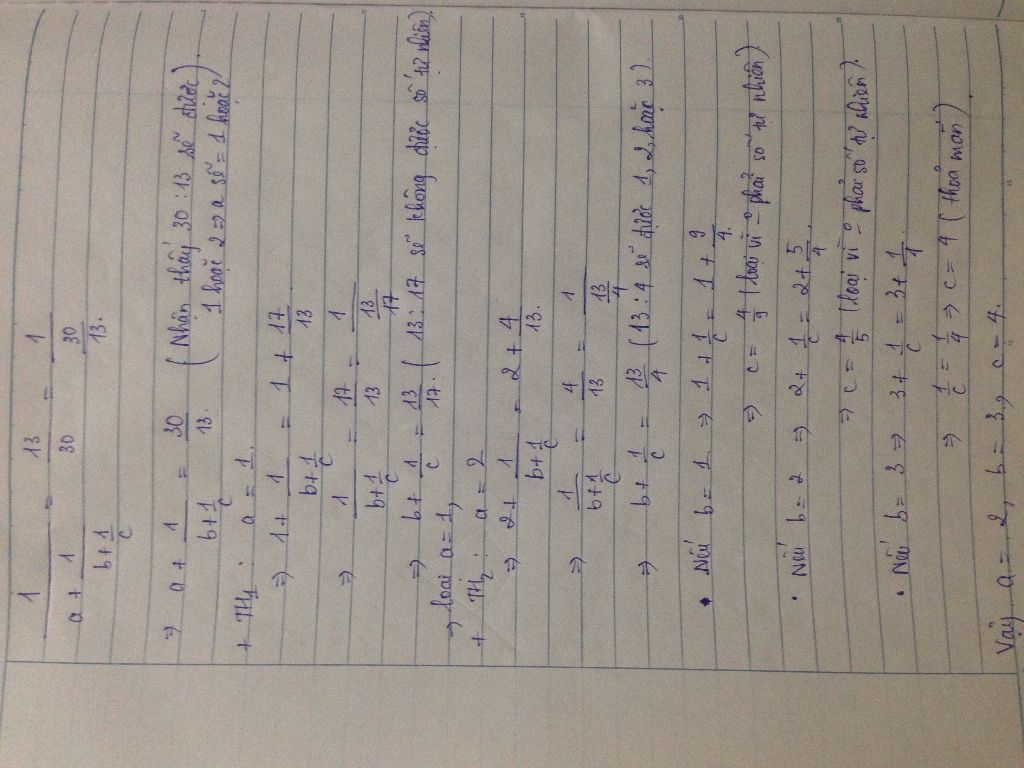 1/(a + 1/(b + 1/c)) = 13/30 = 1/(30/13).
=> a + 1/(b + 1/c) = 30/13. (Nhận thấy 30 : 13 sẽ được 1 hoặc 2 => a sẽ = 1 hoặc 2)
+ TH1 : a = 1.
=> 1 + 1/(b + 1/c) = 1 + 17/13
=> 1/(b + 1/c) = 17/13 = 1/(13/17)
=> b + 1/c = 13/17. (13 : 17 sẽ không được số tự nhiên).
=> loại a = 1,
+ TH2 : a = 2
=> 2 + 1/(b + 1/c) = 2 + 4/13.
=> 1/(b + 1/c) = 4/13 = 1/(13/4)
=> b + 1/c = 13/4 (13 : 4 sẽ được 1, 2, hoặc 3).
• Nếu b = 1 => 1 + 1/c = 1 + 9/4.
=> c = 4/9 (loại vì 0 phải số tự nhiên)
• Nếu b = 2 => 2 + 1/c = 2 + 5/4.
=> c = 4/5 (loại vì 0 phải số tự nhiên).
• Nếu b = 3 => 3 + 1/c = 3 + 1/4.
=> 1/c = 1/4 => c = 4 (thoả mãn).
Vậy a = 2, b = 3, c = 4.